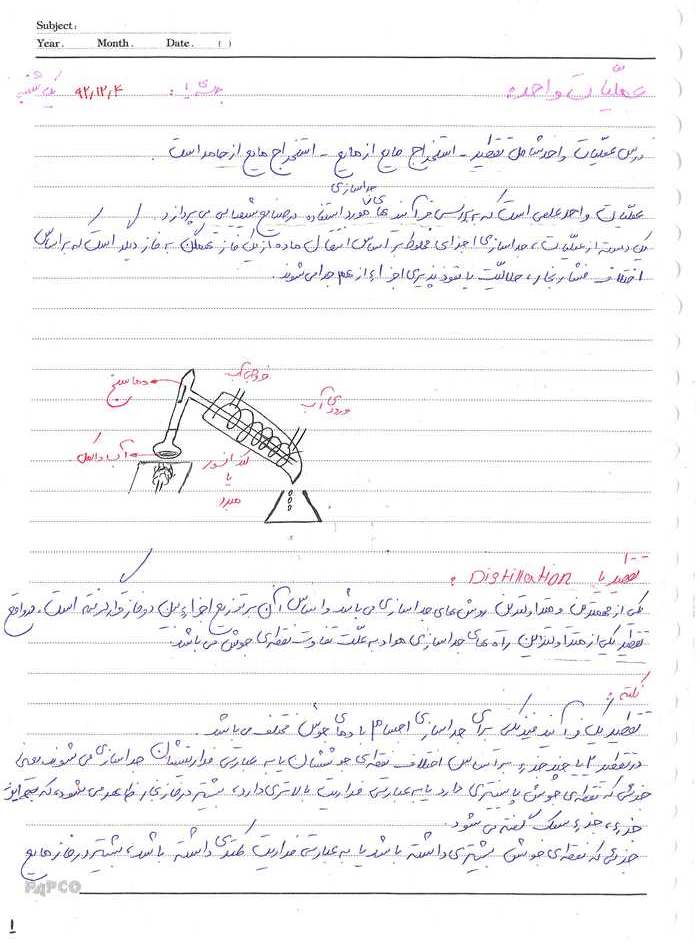 Subject:
Year. Month. Date. ( )
عملیّات واحد جلسه ی ۱: ۹۲,۱۲,۴ یک شنبه
درس عملیّات واحد شامل تقطیر - استخراج مایع از مایع - استخراج مایع از جامد است.
جداسازی
عملیّات واحد علمی است که به بررسی فرآیند های مورد استفاده در صنایع شیمیایی می پردازد.
یک دسته از عملیّات، جداسازی اجزای مخلوط بر اساس انتقال ماده از یک فاز همگن به فاز دیگر است که بر اساس
اختلاف فشار بخار، حلالیّت یا نفوذ پذیری اجزاء از هم جدا می شوند.
خروجی آب
دماسنج
ورودی آب
آب و الکل
کندانسور
یا
مبرد
۱-۰
تقطیر یا Distillation :
یکی از مهمترین و متداولترین روش های جداسازی می باشد و اساس آن بر توزیع اجزاء بین دو فاز قرار گرفته است. در واقع
تقطیر یکی از متداولترین راه های جداسازی مواد به علّت تفاوت نقطه ی جوش می باشد.
نکته:
تقطیر یک فرآیند فیزیکی برای جداسازی اجسام با دمای جوش مختلف می باشد.
در تقطیر ۲ یا چند جزء بر اساس اختلاف نقطه ی جوششان یا به عبارتی فراریتشان جداسازی می شوند یعنی
جزئی که نقطه ی جوش پایینتری دارد یا به عبارتی فراریت بالاتری دارد، بیشتر در فاز بخار ظاهر می شود که به این
جزء، جزء سبک گفته می شود.
جزئی که نقطه ی جوش بیشتری داشته باشد یا به عبارتی فراریت کمتری داشته باشد، بیشتر در فاز مایع
PAPCO
1